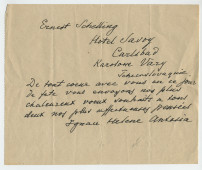 Ernest Schelling
Hôtel Savoy
Carlsbad
Karlovy Vary
Tchecoslovaquie
De tout coeur avec vous en ce jour
de fete vous envoyons nos plus
chaleureux voeux souhaits a tous
deux nos plus affectueuses pensées
Ignace Helene Antonia